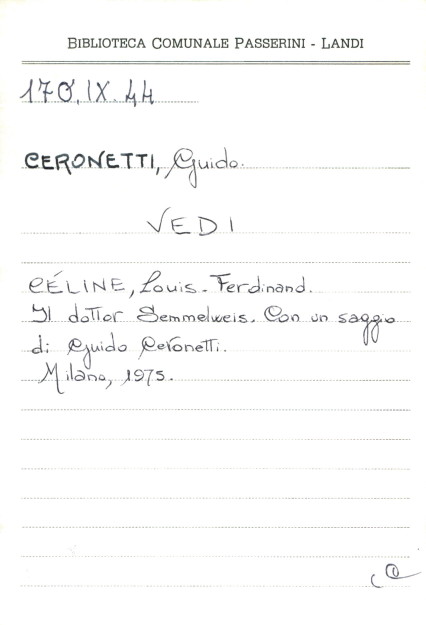 BIBLIOTECA COMUNALE PASSERINI - LANDI
170.IX.44
CERONETTI, Guido.
VEDI
CÉLINE, Louis-Ferdinand.
Il dottor Semmelweis. Con un saggio
di Guido Ceronetti.
Milano, 1975.